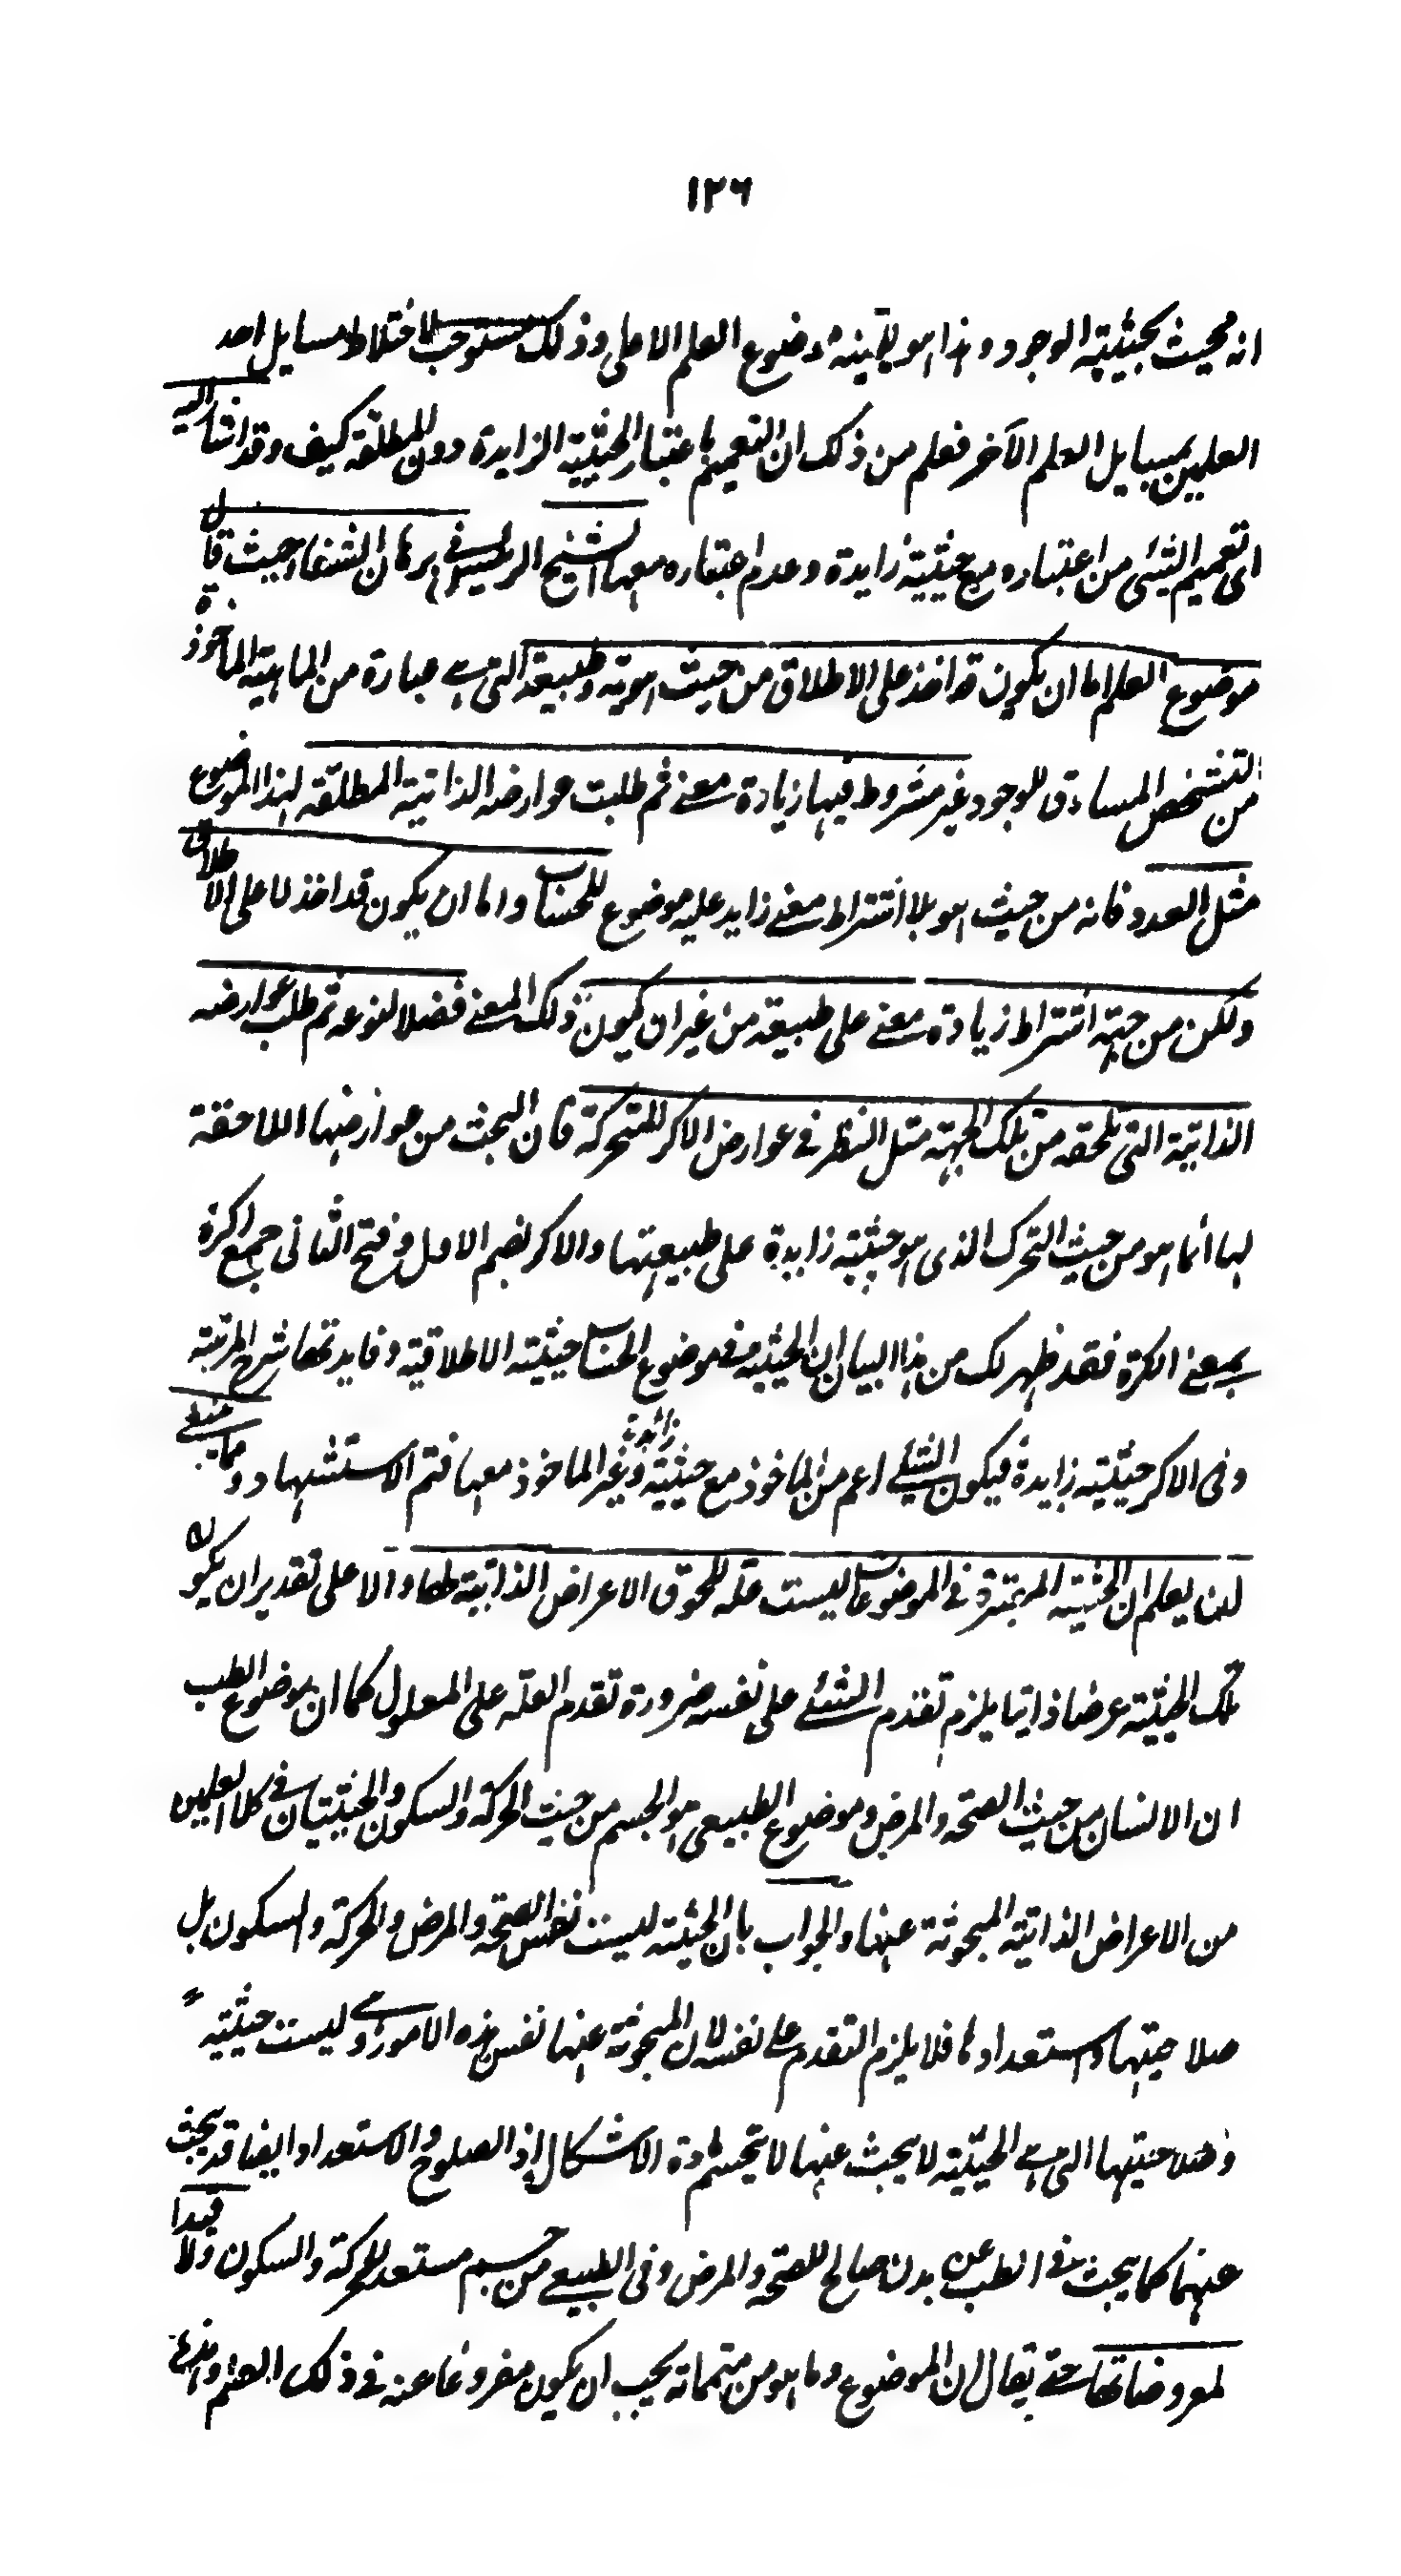 ١٢٦
انه محيث بحيثية الوجود وهذا هو بعينه موضوع العلم الاعلى وذلك مستوجب لاختلاط مسايل احد
العلمين بمسايل العلم الآخر فعلم من ذلك ان التعميم باعتبار الحيثية الزايدة دون المطلقة كيف وقد اشار اليه
اى تعميم الشئ من اعتباره مع حيثية زايدة وعدم اعتباره معها الشيخ الرئيس فى برهان الشفاء حيث قال
موضوع العلم اما ان يكون قد اخذ على الاطلاق من حيث هويته وطبيعة التى هى عبارة من الماهية الماخوذة
من التشخص المساوق للوجود غير مشروط فيها زيادة معنے ثم طلبت عوارضه الذاتية المطلقه لهذا الموضوع
مثل العدد فانه من حيث هو بلا اشتراط معنے زايد عليه موضوع للحساب واما ان يكون قد اخذ لا على الاطلاق
ولكن من جهة اشتراط زيادة معنے على طبيعة من غير ان يكون ذلك المعنے فضلا لنوعه ثم طلب عوارضه
الذاتية التى تلحقه من تلك الجهة مثل النظر فى عوارض الاكر المتحركة فان البحث من عوارضها اللاحقة
لها انما هو من حيث التحرك الذى هو حيثية زايدة على طبيعتها والاكر بضم الاول وفتح الثانى جمع اكرة
بمعنے الكرة فقد ظهر لك من هذا البيان ان الحيثية فى موضوع الحساب حيثية الاطلاقية وفايدتها شرح المرتبة
وفى الاكر حيثية زايدة فيكون الشئے اعم من الماخوذ مع حيثية زائدة وغير الماخوذ معها فتم الاستشهاد ومما ينبغے
لان يعلم ان الحيثية المعتبرة فى الموضوعات ليست علة للحوق الاعراض الذاتية لها والا على تقدير ان يكون
تلك الحيثية عرضا ذاتيا يلزم تقدم الشئے على نفسه ضرورة تقدم العلة على المعلول كما ان موضوع الطب
ان الانسان من حيث الصحة والمرض وموضوع الطبيعى هو الجسم من حيث الحركة والسكون والحيثيتان فى كلا العلمين
من الاعراض الذاتية المبحوثة عنها والجواب بان الحيثية ليست نفس الصحة والمرض والحركة والسكون بل
صلاحيتها واستعدادها فلا يلزم التقدم على نفسه لان المبحوثة عنها نفس هذه الامور وهى ليست حيثية
وصلاحيتها التى هى الحيثية لا يبحث عنها لا يحسم مادة الاشكال اذ الصلوح والاستعداد ايضا قد يبحث
عنهما كما يبحث فى الطب عن بدن صالح للصحة والمرض وفى الطبيعے من جسم مستعد للحركة والسكون ولا قيدا
لمعروضاتها حتے يقال ان الموضوع وما هو من متمماته يجب ان يكون مفروغا عنه فى ذلك العلم